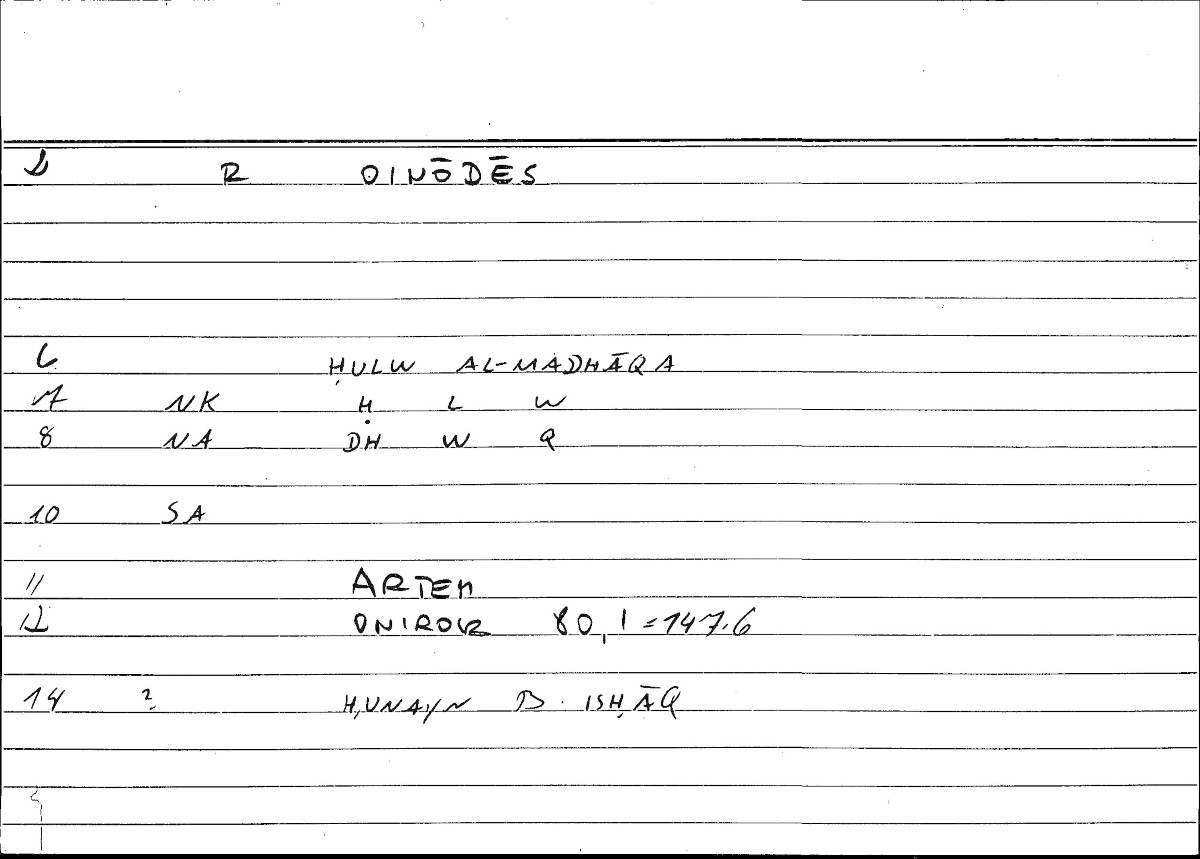 1 R OINŌDĒS
6 ḤULW AL-MADHĀQA
7 NK Ḥ L W
8 NA DH W Q
10 SA
11 ARTEM
12 ONIROCR 80,1=147.6
14 ? ḤUNAYN B. ISḤĀQ